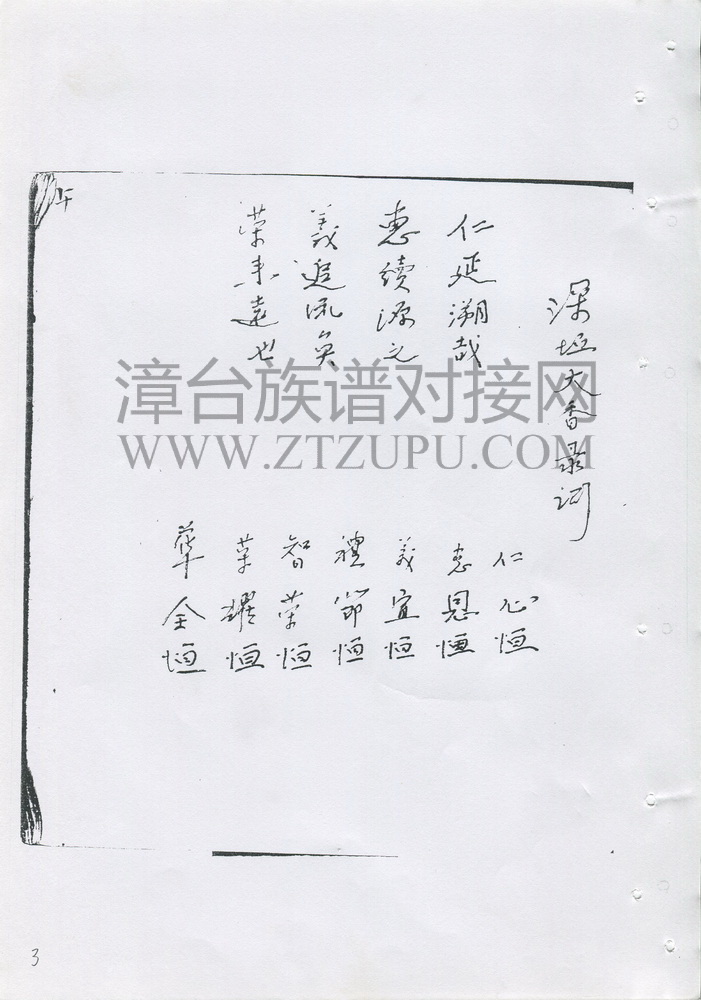 深垣大香录词
仁延溯哉
惠續源之
義追流奐
榮未遠也
仁心恒
惠恩恒
義宜恒
禮節恒
智荣恒
耀恒
華全恒
漳台族谱对接网
WWW.ZTZUPU.COM
3